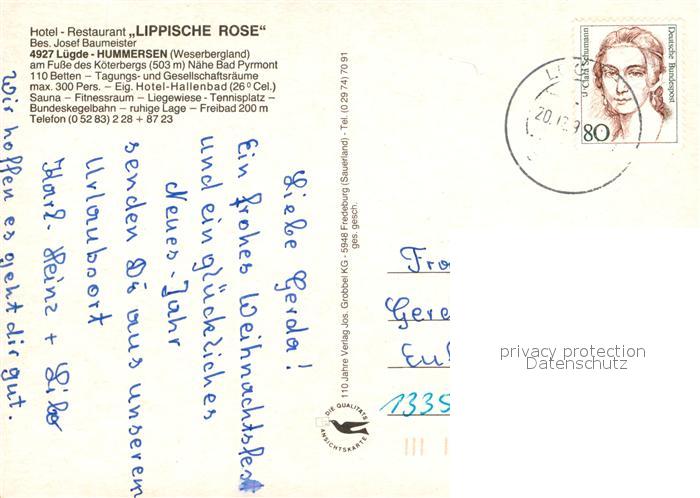 Hotel - Restaurant „LIPPISCHE ROSE"
Bes. Josef Baumeister
4927 Lügde - HUMMERSEN (Weserbergland)
am Fuße des Köterbergs (503 m) Nähe Bad Pyrmont
110 Betten – Tagungs- und Gesellschaftsräume
max. 300 Pers. – Eig. Hotel-Hallenbad (26° Cel.)
Sauna – Fitnessraum – Liegewiese - Tennisplatz –
Bundeskegelbahn – ruhige Lage – Freibad 200 m
Telefon (0 52 83) 2 28 + 87 23
Liebe Gerda!
Ein frohes Weihnachtsfest
und ein glückliches
Neues-Jahr
senden Dir aus unserem
Urlaubsort
Karl-Heinz +
Wir hoffen es geht dir gut.
110 Jahre Verlag Jos. Grobbel KG - 5948 Fredeburg (Sauerland) - Tel. (0 29 74) 70 91
ges. gesch.
DIE QUALITÄTS
ANSICHTSKARTE
Deutsche Bundespost
Clara Schumann
80
20.12.9
Fra
Gere
1335
privacy protection
Datenschutz